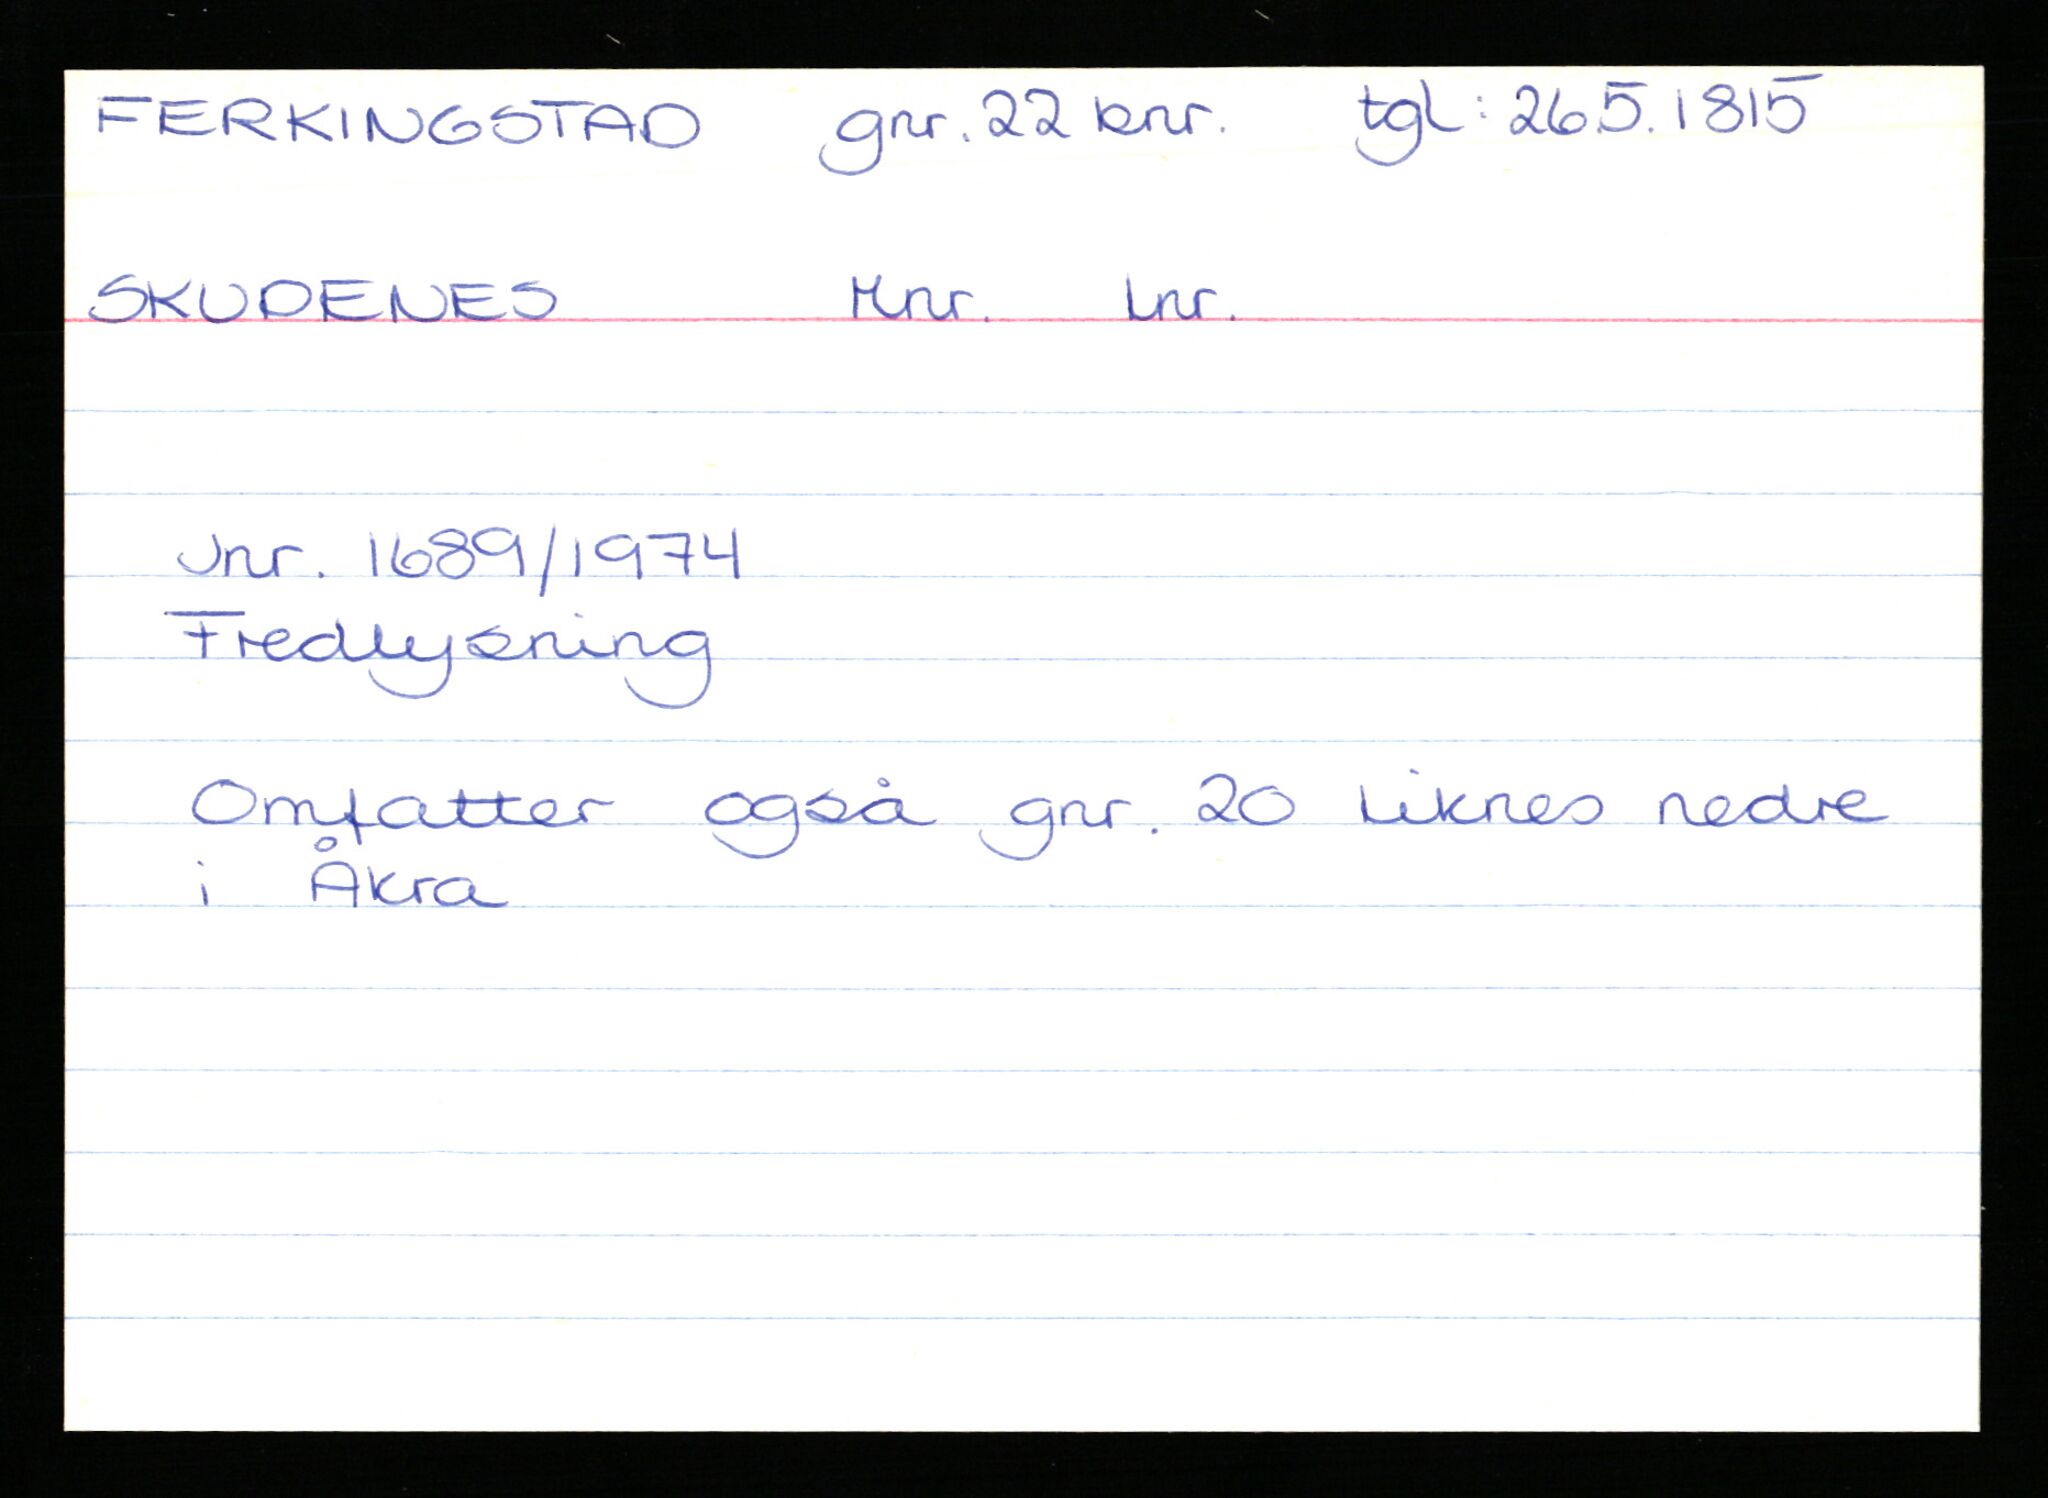 FERKINGSTAD gnr. 22 bnr. tgl: 26.5.1815
SKUDENES Mnr. Lnr.
Jnr. 1689/1974
Fredlysning
Omfatter også gnr. 20 Liknes nedre
i Åkra